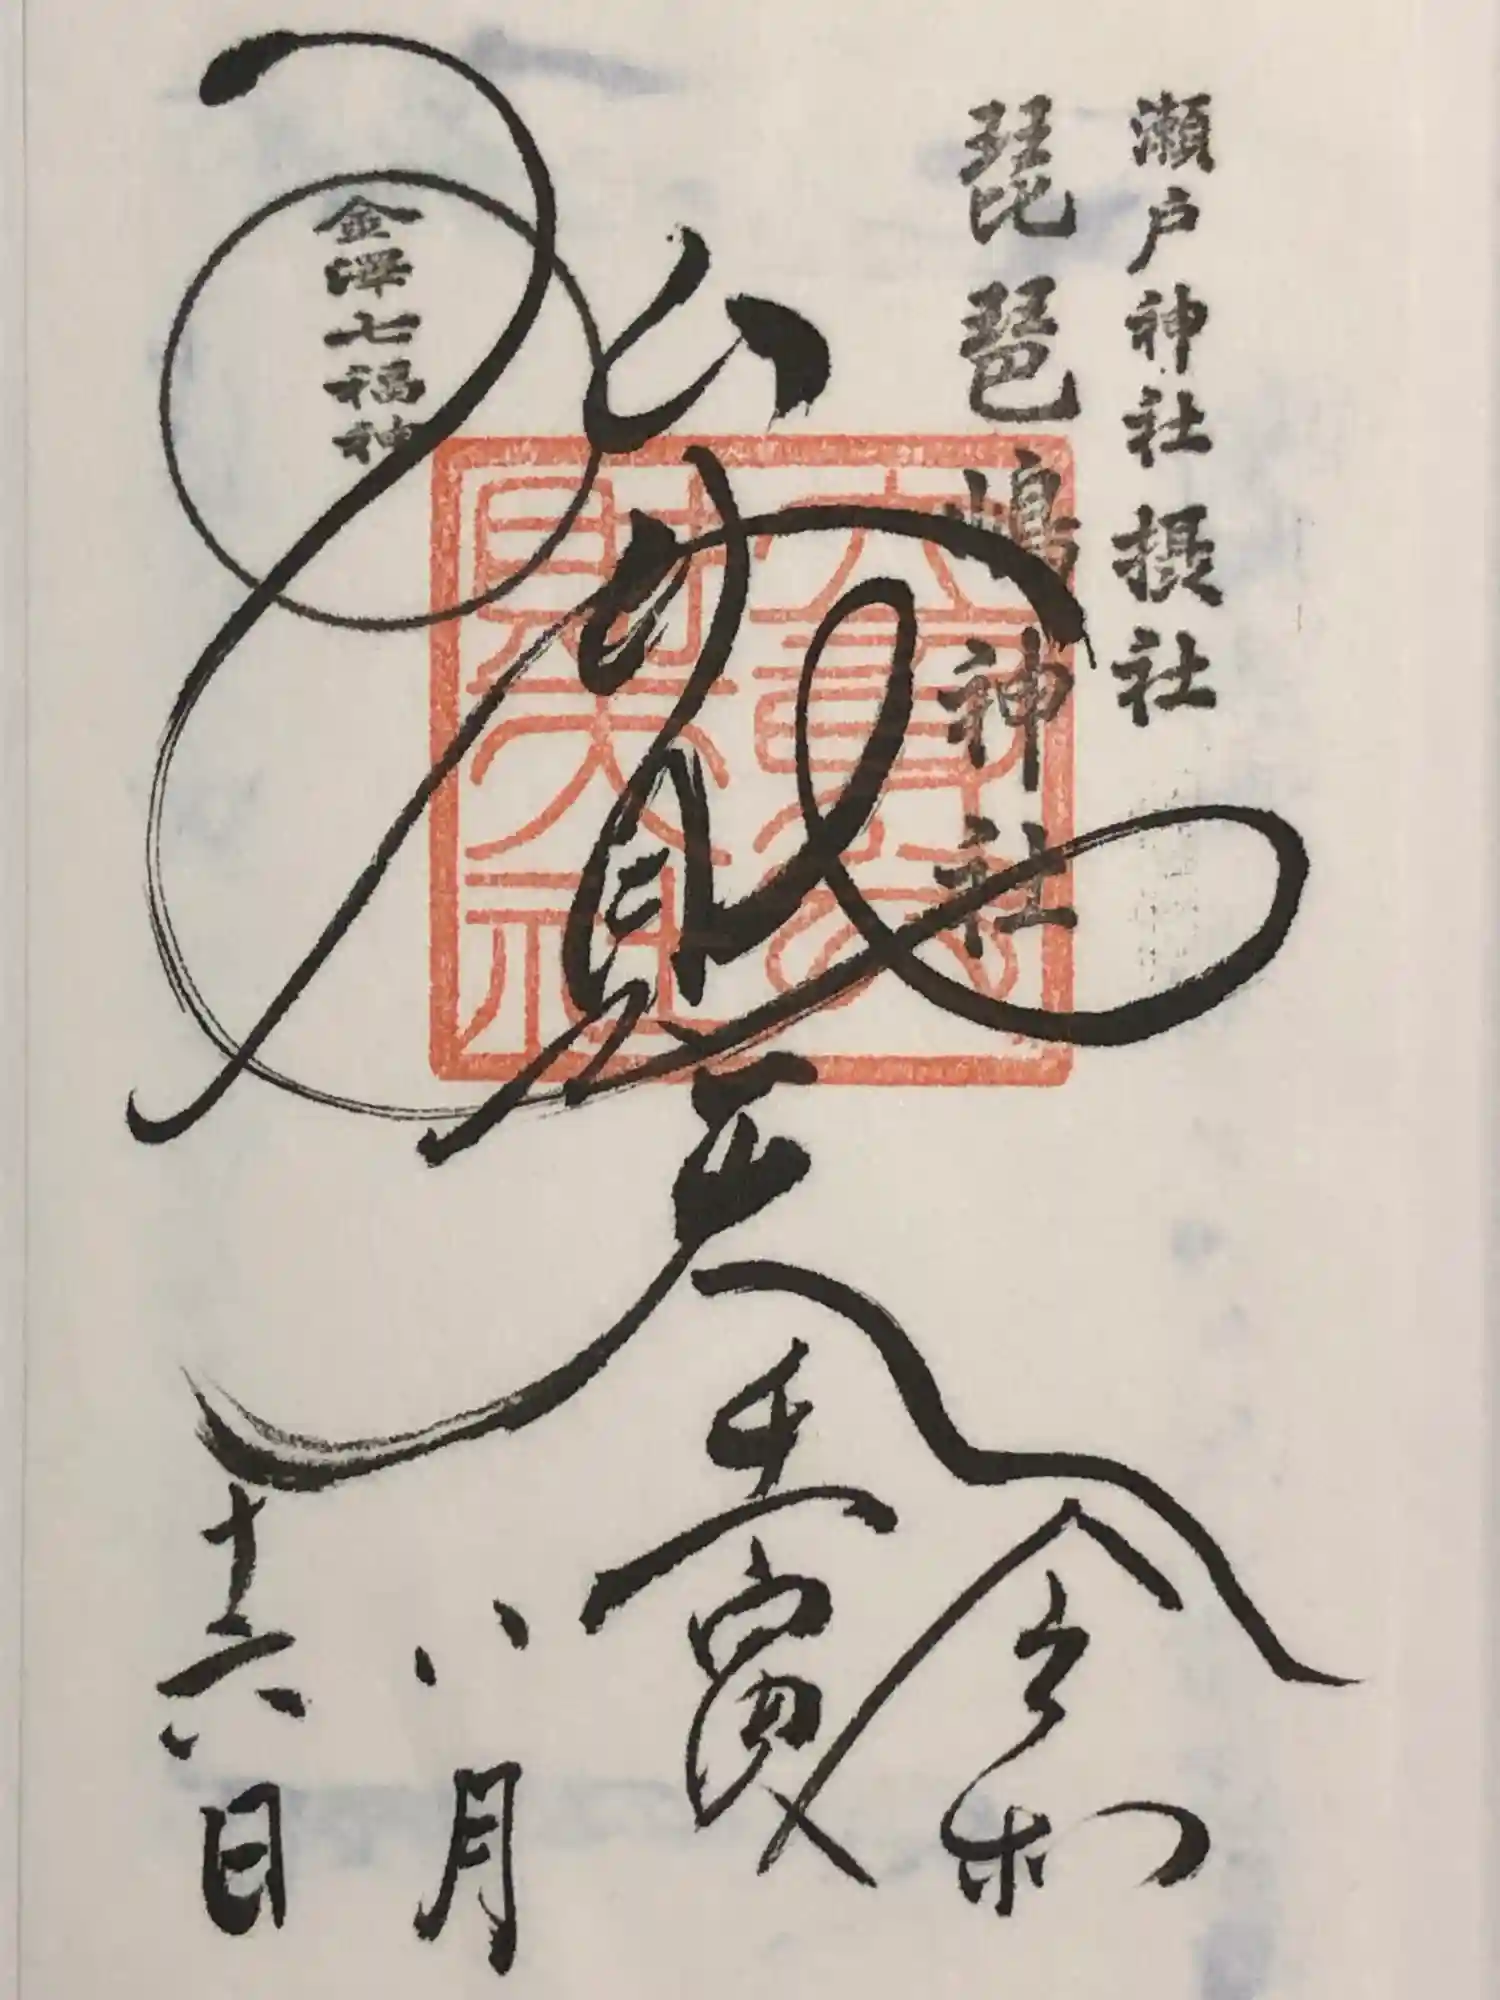 瀬戸神社摂社
琵琶嶋神社
立身弁
財天社
弁財天
金澤七福神
令和
壬寅
八月
十六日